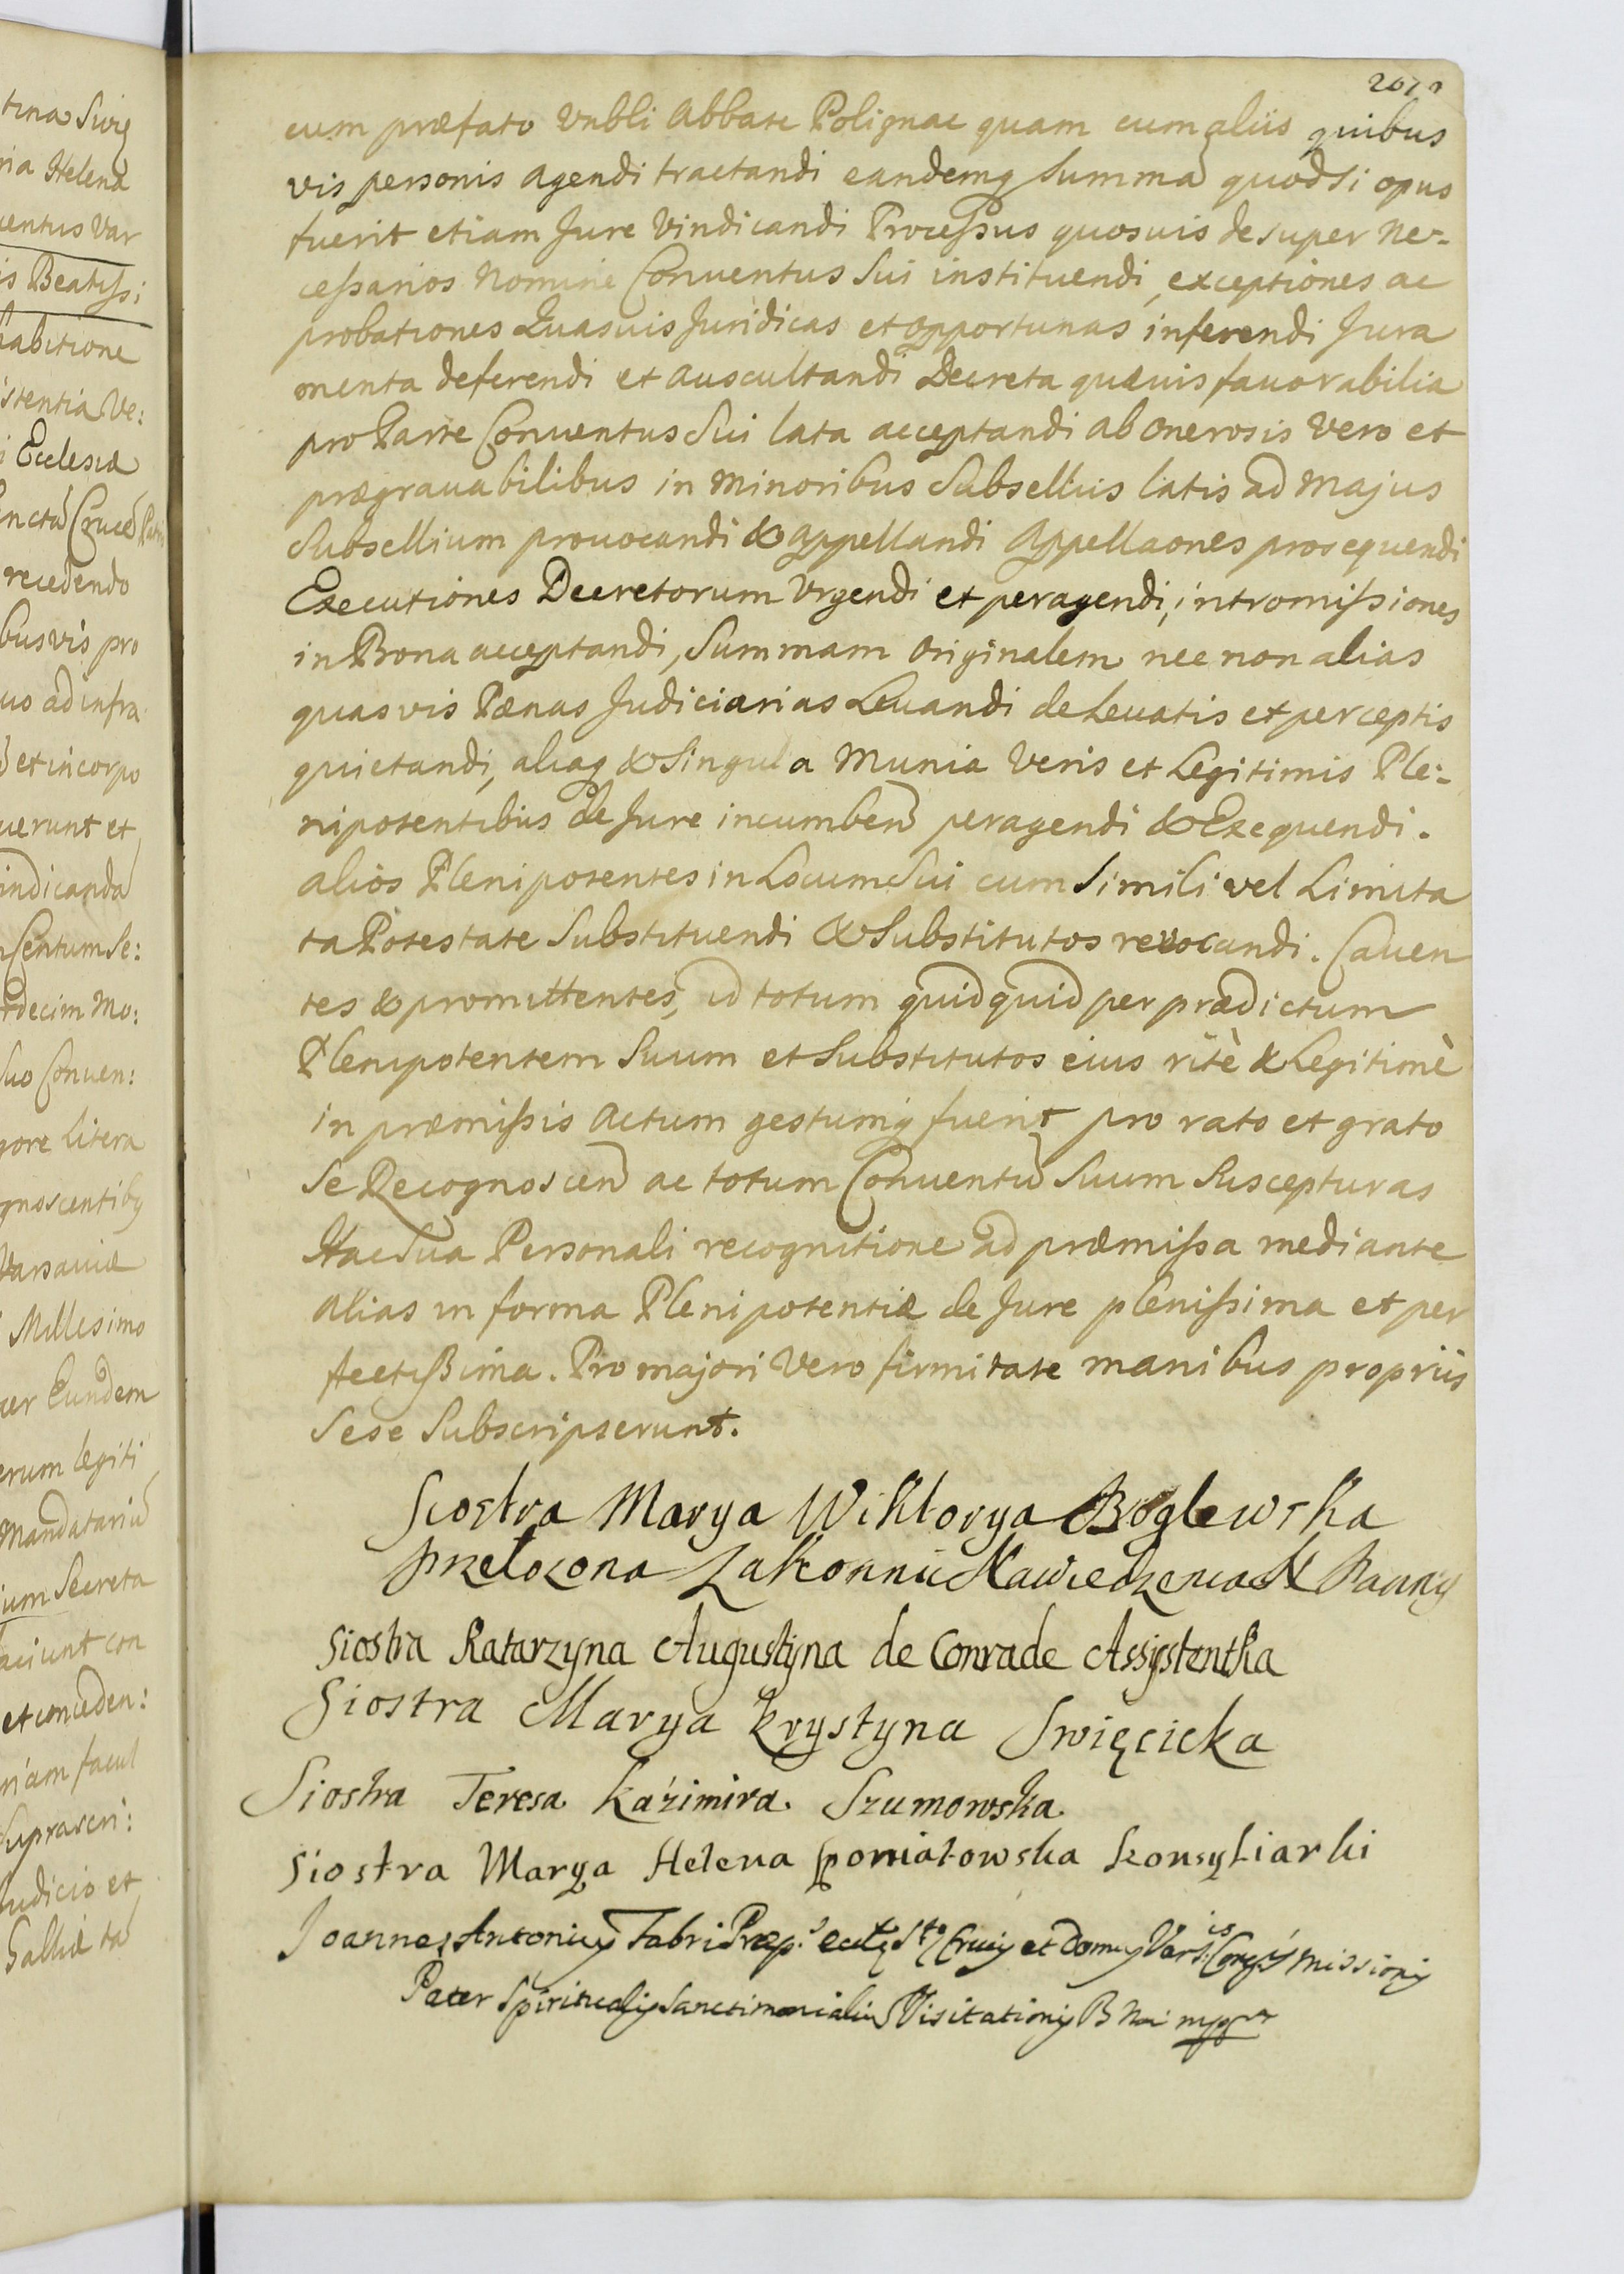 tina Swię
ria Helena
uentus Var
is Beatissi:
habitione
istentia Ve:
i Ecclesiæ
recedendo
busvis pro
uo ad infra
et incorpo
uerunt et
indicanda
Centum Se:
decim Mo:
suo Conuen:
gore litera
gnoscentibq
Varsauiæ
Millesimo
cer Eundem
erum legiti
Mandatariu
ium Secreta
aciunt con
et conceden:
riam facul
suprascri:
Judicio et
Galliæ ta
cum præfato Vnbli Abbate Polignac quam cum aliis quibus
vis personis agendi tractandi eandemq summã quodsi opus
fuerit etiam Jure Vindicandi Processus quosuis desuper Ne-
cessarios Nomine Conuentus Sui instituendi, exceptiones ac
probationes Quasuis Juridicas et opportunas inferendi Jura
menta deferendi et auscultandi Decreta quæuis fauorabilia
pro Parte Conuentus Sui lata acceptandi ab onerosis Vero et
prægrauabilibus in minoribus Subselliis latis ad majus
Subsellium prouocandi & appellandi Appellaones prosequendi
Executiones Decretorum Vrgendi et peragendi, intromissiones
in Bona acceptandi, Summam Originalem nec non alias
quasvis Pænas Judiciarias Leuandi de Leuatis et perceptis
quietandi, aliaq & Singula Munia Veris et Legitimis Ple:
nipotentibus de Jure incumben peragendi & Exequendi.
alios Plenipotentes in Locum Sui cum Simili vel Limita
ta Potestate Substituendi & Substitutos revocandi. Cauen
tes & promittentes, id totum quidquid per prædictum
Plenipotentem Suum et Substitutos eius ritè & Legitimè
in præmissis actum gestumq fuerit pro rato et grato
Se Recognoscen ac totum Conuentũ Suum Suscepturas
Hac Sua Personali recognitione ad præmissa mediante
alias in forma Plenipotentiæ de Jure plenissima et per
fectissima. Pro majori Vero firmitate manibus propriis
Sese Subscripserunt.
Siostra Marya Wiktorya Boglewska
przelozona Zakonnic Nawiedzenia N Panny
Siostra Katarzyna Augustyna de Conrade Assystentka
Siostra Marya Krystyna Swięcicka
Siostra Teresa Kaźimira Szumowska
Siostra Marya Helena poniatowska konsyliarki
Joannes Antonius Fabri Præp. Eccle Stæ Crucis et Domus Vars. Cong. Missionis
Pater Spiritualis Sanctimonialiu Visitationis B